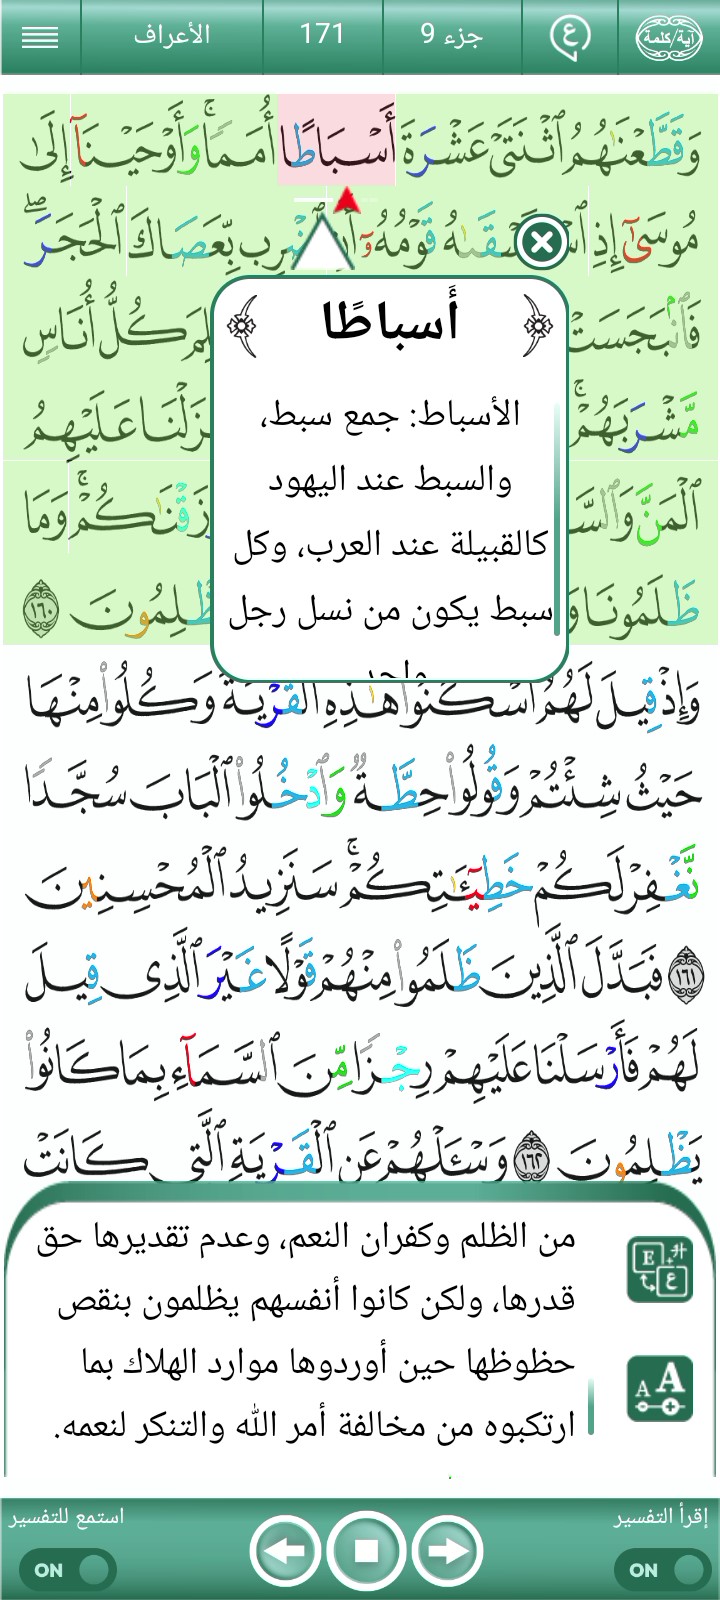 آية/كلمة
ع
جزء 9
171
الأعراف
وَقَطَّعْنَٰهُمُ ٱثْنَتَىْ عَشْرَةَ أَسْبَاطًا أُمَمًا ۚ وَأَوْحَيْنَآ إِلَىٰ
مُوسَىٰٓ إِذِ قَوْمُهُۥٓ بِّعَصَاكَ ٱلْحَجَرَ ۖ
فَٱنۢبَجَسَتْ كُلُّ أُنَاسٍ
مَّشْرَبَهُمْ ۚ عَلَيْهِمُ
ٱلْمَنَّ وَمَا
ظَلَمُونَا ١٦٠
أَسباطًا
الأسباط: جمع سبط،
والسبط عند اليهود
كالقبيلة عند العرب، وكل
سبط يكون من نسل رجل
وَإِذْ قِيلَ لَهُمُ ٱسْكُنُوا۟ هَٰذِهِ ٱلْقَرْيَةَ وَكُلُوا۟ مِنْهَا
حَيْثُ شِئْتُمْ وَقُولُوا۟ حِطَّةٌ وَٱدْخُلُوا۟ ٱلْبَابَ سُجَّدًا
نَّغْفِرْ لَكُمْ خَطِيٓـَٰٔتِكُمْ ۚ سَنَزِيدُ ٱلْمُحْسِنِينَ
١٦١ فَبَدَّلَ ٱلَّذِينَ ظَلَمُوا۟ مِنْهُمْ قَوْلًا غَيْرَ ٱلَّذِى قِيلَ
لَهُمْ فَأَرْسَلْنَا عَلَيْهِمْ رِجْزًا مِّنَ ٱلسَّمَآءِ بِمَا كَانُوا۟
يَظْلِمُونَ ١٦٢ وَسْـَٔلْهُمْ عَنِ ٱلْقَرْيَةِ ٱلَّتِى كَانَتْ
من الظلم وكفران النعم، وعدم تقديرها حق
قدرها، ولكن كانوا أنفسهم يظلمون بنقص
حظوظها حين أوردوها موارد الهلاك بما
ارتكبوه من مخالفة أمر الله والتنكر لنعمه.
E
ع
A A
إقرأ التفسير
استمع للتفسير
ON
ON